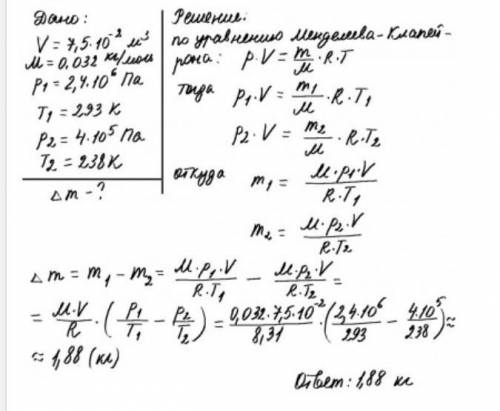 Дано:
V = 7,5·10⁻² м³
M = 0,032 кг/моль
p₁ = 2,4·10⁶ Па
T₁ = 293 К
p₂ = 4·10⁵ Па
T₂ = 238 К
Δm - ?
Решение:
по уравнению Менделеева-Клапей-
рона: p·V = m/M · R·T
тогда p₁·V = m₁/M · R·T₁
p₂·V = m₂/M · R·T₂
откуда m₁ = M·p₁·V / R·T₁
m₂ = M·p₂·V / R·T₂
Δm = m₁ - m₂ = M·p₁·V / R·T₁ - M·p₂·V / R·T₂ =
= M·V / R · (p₁/T₁ - p₂/T₂) = 0,032·7,5·10⁻² / 8,31 · (2,4·10⁶ / 293 - 4·10⁵ / 238) ≈
≈ 1,88 (кг)
Ответ: 1,88 кг